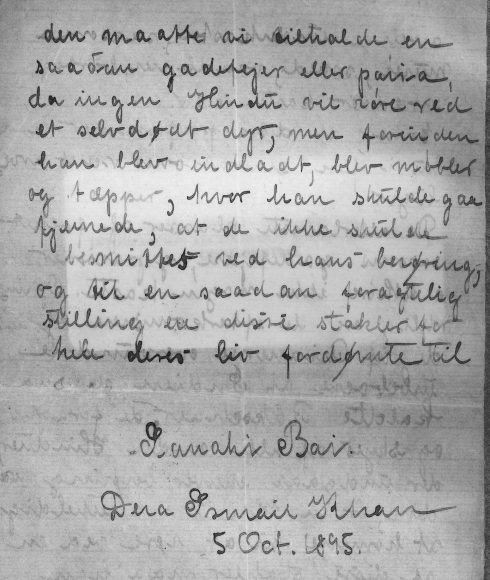 den maatte vi tilkalde en
saadan gadefejer eller paria,
da ingen Hindu vil röre ved
et selvdødt dyr, men forinden
han blev indladt, blev möbler
og tæpper, hvor han skulde gaa
fjernede, at de ikke skulde
besmittet ved hans berøring,
og til en saadan foragtelig
stilling er disse stakler for
hele deres liv fordømte til
Bai.
Dera Ismail Khan
5 Oct. 1895.